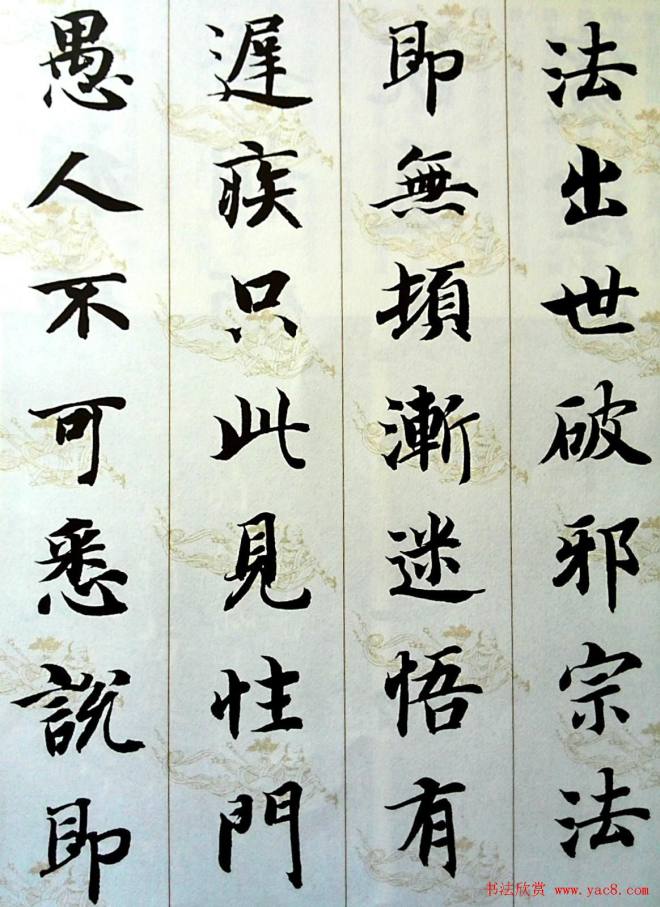 法出世破邪宗法
即無頓漸迷悟有
遲疾只此見性門
愚人不可悉說即
书法欣赏 www.yac8.com